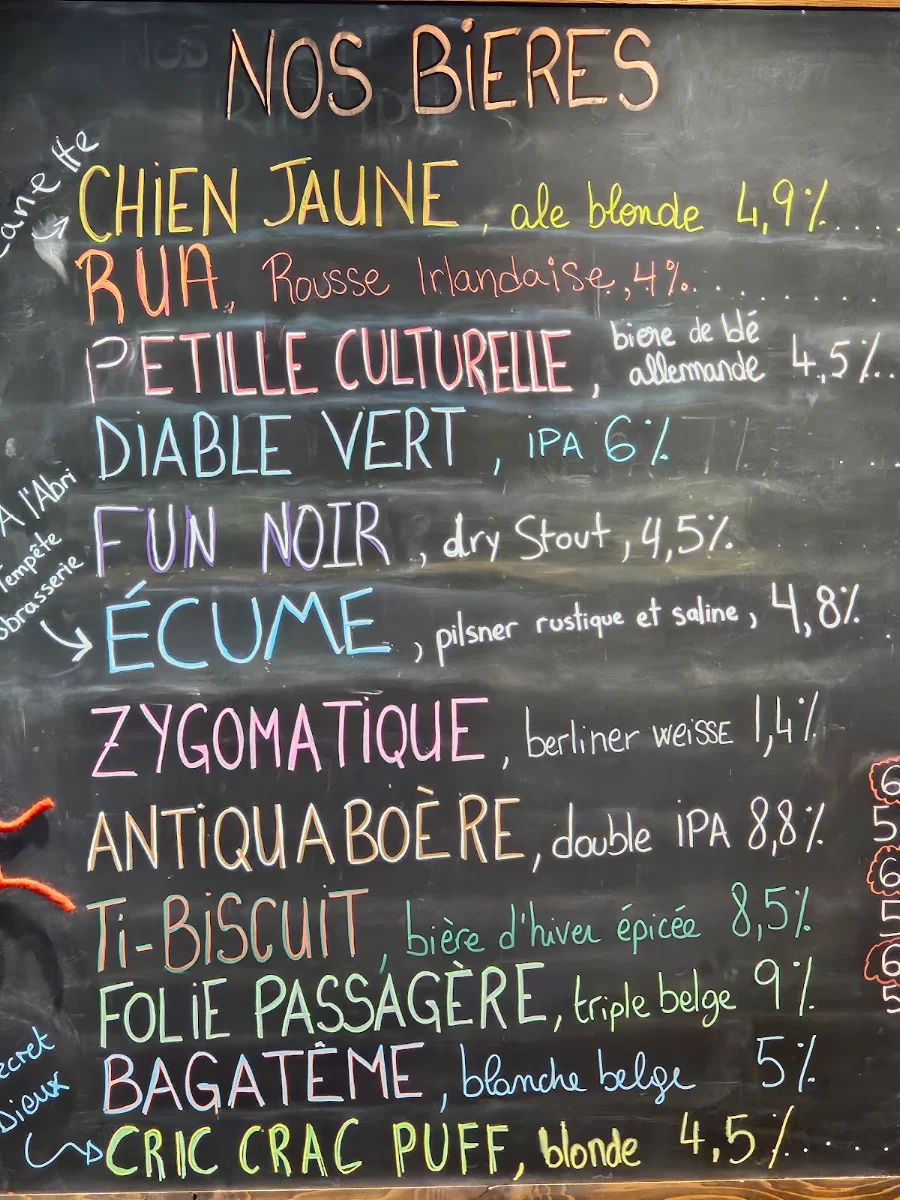 NOS BIERES
CHIEN JAUNE, ale blonde 4,9%....
RUA, Rousse Irlandaise, 4%.........
PETILLE CULTURELLE, bière de blé allemande 4,5%..
DIABLE VERT, IPA 6%
A l'Abri
Tempête
FUN NOIR, dry Stout, 4,5%.
ÉCUME, pilsner rustique et saline, 4,8%
ZYGOMATIQUE, berliner weisse 1,4%
ANTIQUABOÈRE, double IPA 8,8%
Ti-BISCUIT, bière d'hiver épicée 8,5%
FOLIE PASSAGÈRE, triple belge 9%
BAGATÊME, blanche belge 5%
Dieux
CRIC CRAC PUFF, blonde 4,5%......